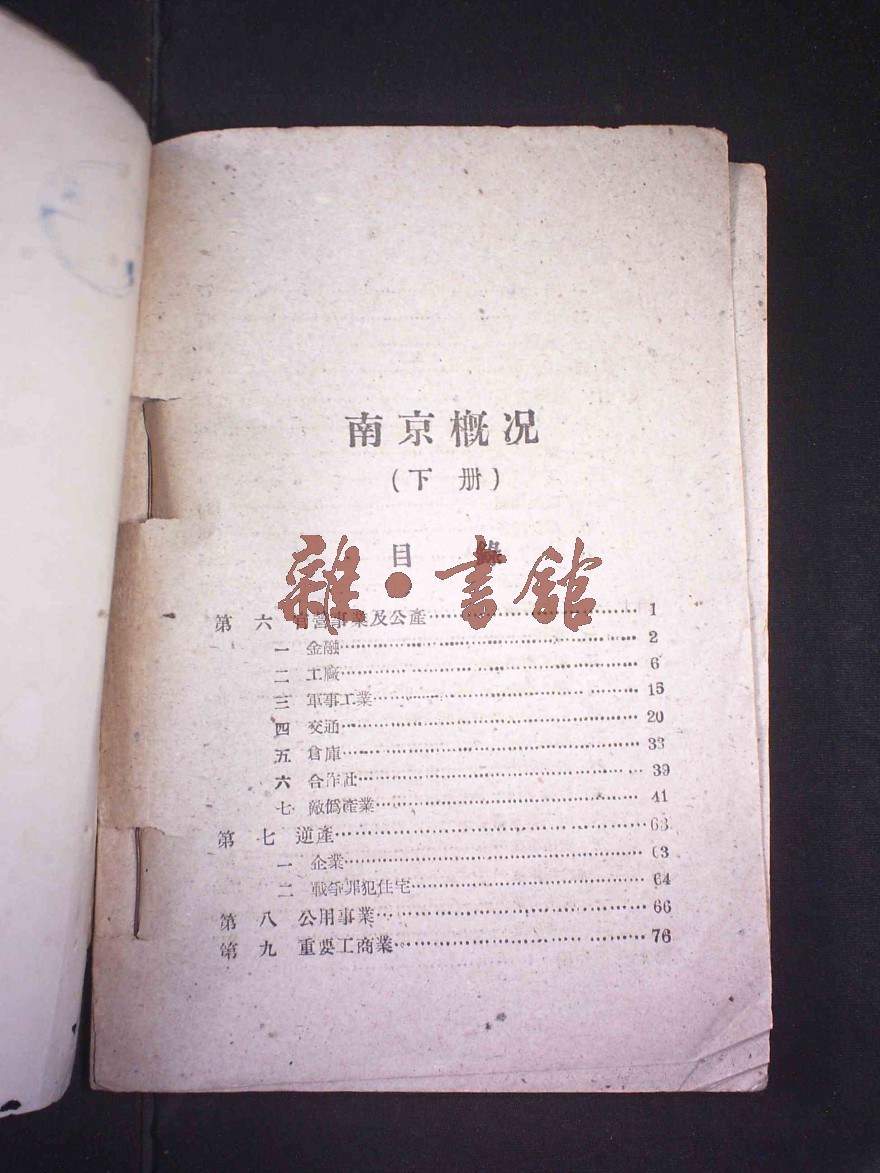 南京概况
(下 册)
目 錄
雜·書館
第 六 官營事業及公產……1
一 金融……2
二 工廠……6
三 軍事工業……15
四 交通……20
五 倉庫……33
六 合作社……39
七 敵僞產業……41
第 七 逆產……63
一 企業……63
二 戰爭罪犯住宅……64
第 八 公用事業……66
第 九 重要工商業……76